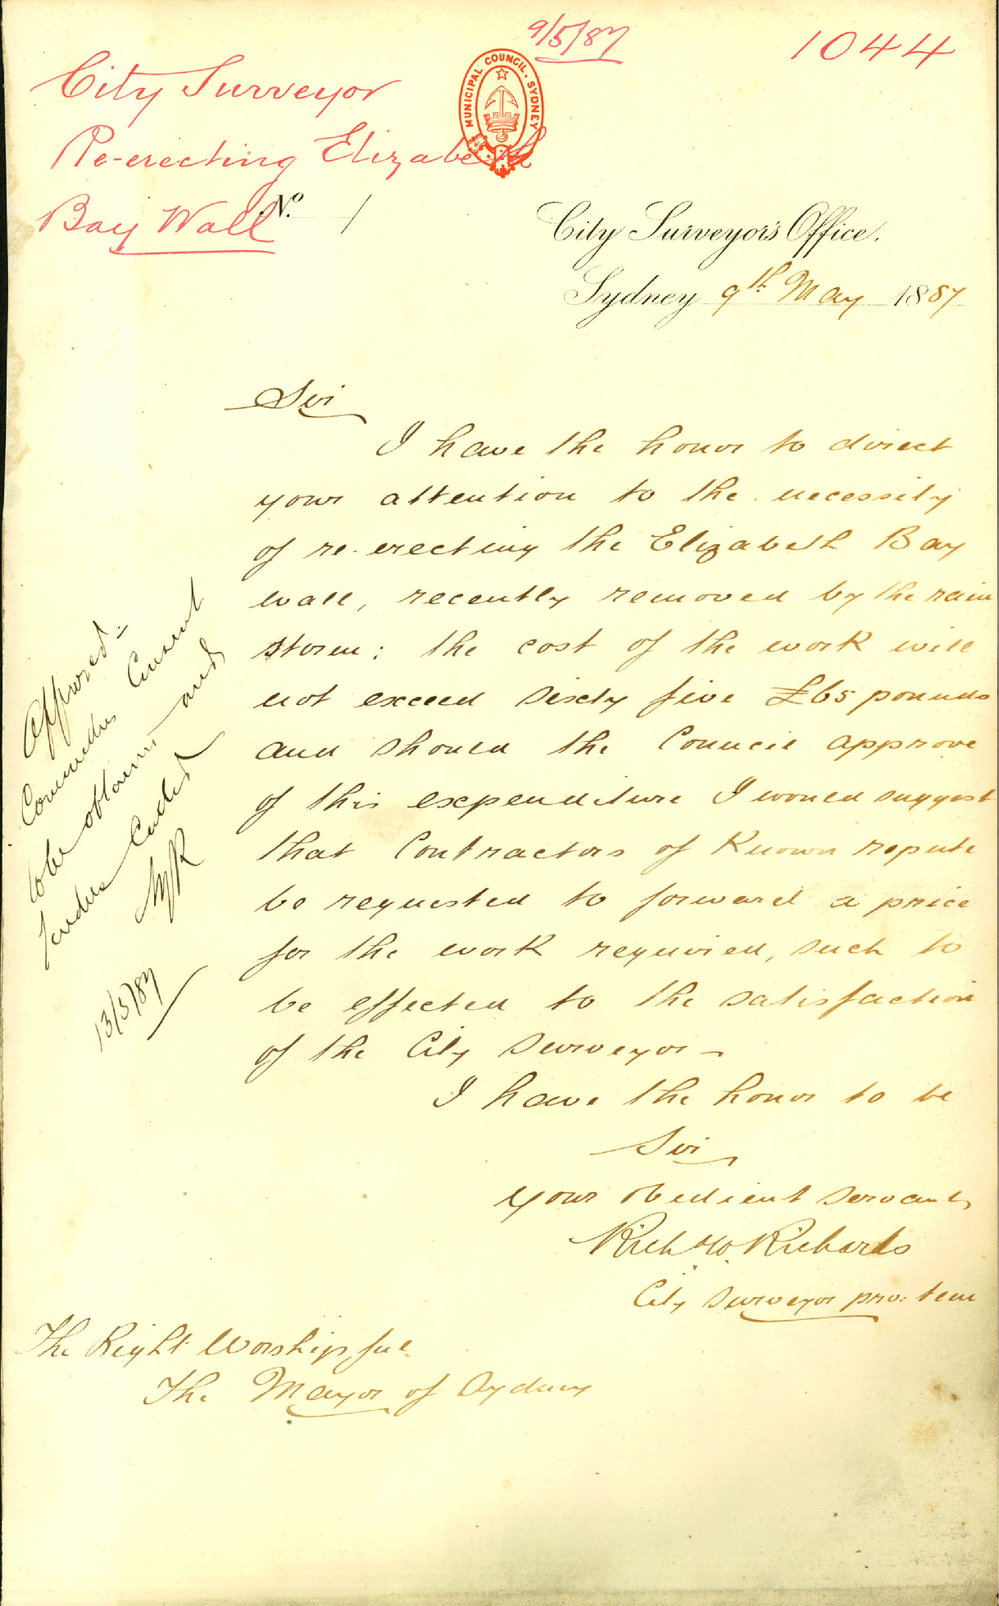 9/5/87
1044
City Surveyor
Re-erecting Elizabeth
Bay Wall
MUNICIPAL COUNCIL. SYDNEY
No. 1
City Surveyor's Office.
Sydney 9th May 1887
Sir
I have the honor to direct
your attention to the necessity
of re-erecting the Elizabeth Bay
wall, recently removed by the rain
storm: the cost of the work will
not exceed sixty five £65 pounds
and should the Council approve
of this expenditure I would suggest
that Contractors of Known repute
be requested to forward a price
for the work required, such to
be effected to the satisfaction
of the City Surveyor –
I have the honor to be
Sir
Your obedient servant,
Rich W. Richards
City Surveyor pro: tem
The Right Worshipful
The Mayor of Sydney
Approved:
Committees Consent
to be obtained and
tenders Called
13/5/87